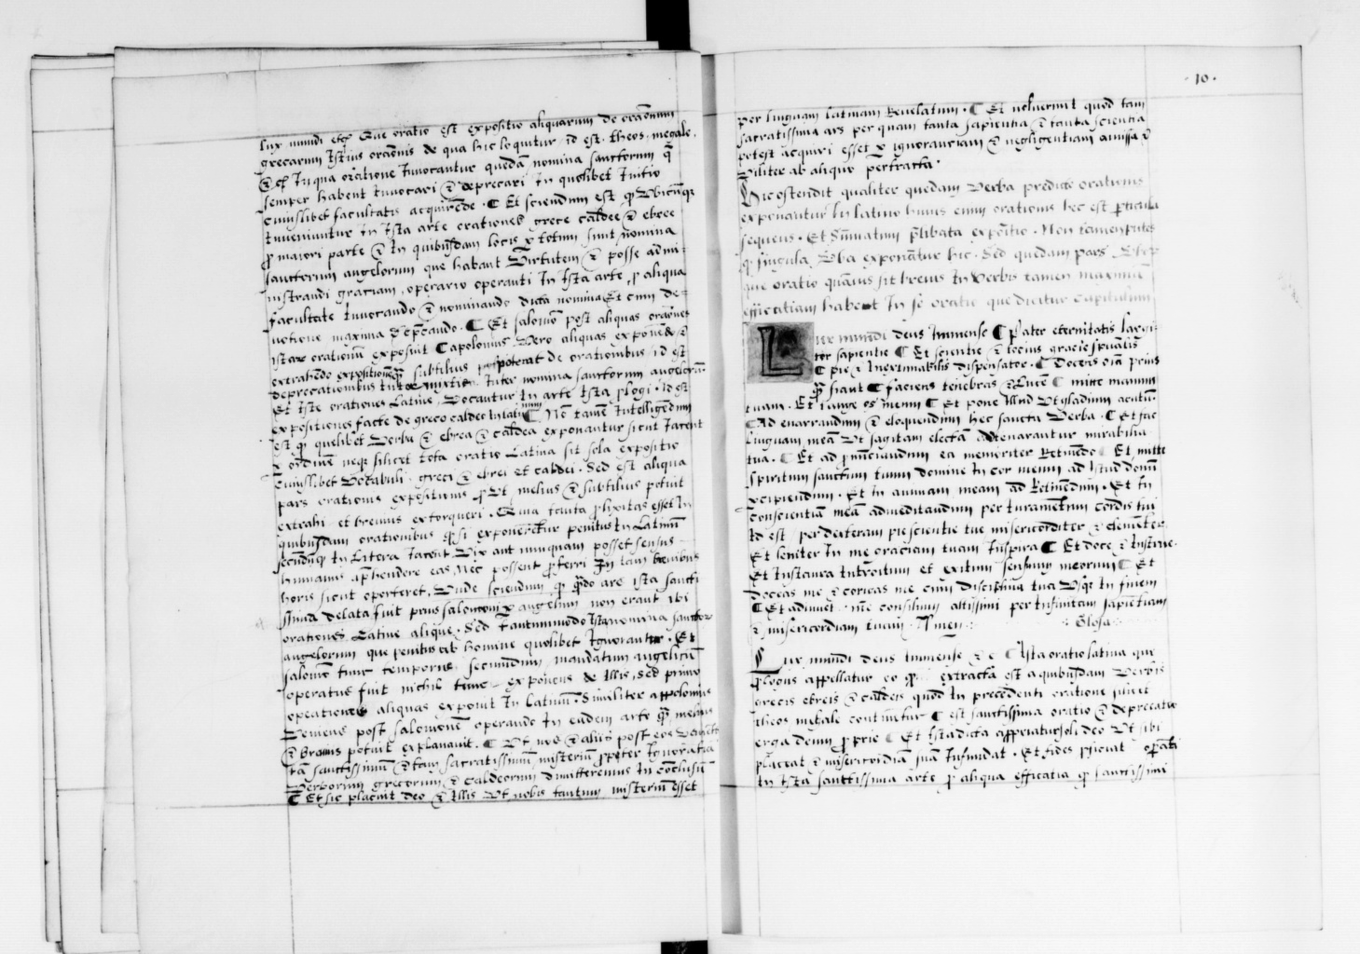 lux mundi etc̃ Que oratio est expositio aliquarum de oracionũ
grecarum Istius oracionis de qua hic loquitur id est. theos. megale.
In qua oratione Invocantur quedã nomina sanctorum q̃
semper habent Invocari & deprecari In quolibet Initio
cuiuslibet facultatis acquirẽde. ¶ Et sciendum est qd̓ ubicũqz
Inveniantur In Ista arte orationes grece caldee & ebree
p̱ maiori parte & In quibusdam locis totum sunt nomina
sanctorum angelorum que habent Virtutem & posse admi
nistrandi graciam. operario operanti In Ista arte, p̱ aliqua
facultate Invocando & nominando dicta nomina Et cum de
votione maxima & p̃cando. ¶ Et salomõ post aliquas oraciones
Istar orationum exposuit ¶ apolonius Vero aliquas exponẽdo &
extrahẽdo expositionesqz subtilius potuit de orationibus. id est
deprecationibus Inter nomina sanctorum angelorũ
Et Iste orationes Latine, Vocantur In arte Ista p̱logi. Id est
expositiones facte de greco caldeo In latinum ¶ Nõ tamẽ Intelligendum
est qd̓ quelibet Verba & ebrea & caldea exponantur sicut Iacent
ordinẽ neqz silicet tota oratio Latina sit sola expositio
cuiuslibet Vocabuli. greci & ebrei et caldei. Sed est aliqua
pars orationis expositiuus p̱ Ut melius & subtilius potuit
extrahi et brevius extorqueri. Quia tanta p̱lixitas esset In
quibusdam orationibus q̃ si exponerẽtur penitus In Latinũ
secundũqz In Litera Iacent Vix aut nunquam posset sensus
humanus ap̃hendere eas, Nec possent p̱ferri In tam brevibus
horis sicut oporteret. Unde sciendum qd̓ q̃do ars ista sancti
ssima delata fuit prius salomoni angelum non erant ibi
orationes Latine alique. Sed tantummodo Ista nomina sanctor
angelorum que penitus ab homine quolibet Ignorantur. Et
salomõ tunc temporis. secundum mandatum angelicũ
operatus fuit nichil tunc exponens de Illis, Sed primo
operationes aliquas exposuit In Latinũ. Similiter appolonius
Veniens post salomonẽ operando In eadem arte q̃ melius
& brevius potuit explanavit. ¶ Ut nos & alijs post eos Venientes
tã sanctissimũ & tam sacratissimũ misteriũ propter Ignorantiã
Verborum grecorum & caldeorum dimitteremus In conclusũ
¶ Et sic placuit deo & Illis Ut nobis tantum misteriũ esset
·10·
per linguam latinam Revelatum. ¶ Et noluerunt quod tam
sacratissima ars per quam tanta sapientia & tanta scientia
potest acquiri esset ignoranciam & negligentiam amissa &
Viliter ab aliquo pertracta.
Hic ostendit qualiter quedam Verba predicte orationis
exponantur In latino huius enim orationis hec est p̱ticula
sequens. Et Sũmatim p̃libata expositio. Non tamen putes
qd̓ singula Vba exponãtur hic. Sed quedam pars
que oratio quãvis sit brevis In Verbis tamen maximã
efficatiam habent In se oratio que dicitur capitulum
Lux mundi deus Immense ¶ Pater eternitatis Largi
tor sapientie ¶ Et scientie & tocius gracie spiritualis
¶ pie & Inextimabilis dispensator. ¶ Noscens oĩa prius
q̃ fiant ¶ faciens tenebras & Lucẽ ¶ mitte manum
tuam. Et tange os meum ¶ Et pone Illud Ut gladium acutũ
¶ Ad enarrandum & eloquendum hec sancta Verba. ¶ Et fac
Linguam meã Ut sagitam electã ad enarrantur mirabilia
tua. ¶ Et ad p̱nunciandum ea memoriter Retinẽdo ¶ Et mitte
spiritum sanctum tuum domine In cor meum ad Istud donũ
percipiendum. Et In animam meam ad Retinẽdum. Et In
conscientiã meã ad meditandum per Iuramẽtum cordis tui
Id est. per dexteram pie scientie tue misericorditer & clemẽter
Et leniter In me graciam tuam Inspira ¶ Et doce & Instrue.
Et Instaura Introitum et exitum sensuum meorum ¶ Et
doceas me & corrigas me cum disciplina tua Usqz In finem
¶ Et adiuvet me consilium altissimi per Infinitam sapientiam
& misericordiam tuam. Amen. Glosa.
Lux mundi deus Immense & c̃ ¶ Ista oratio latina que
p̱logus appellatur eo qd̓ extracta est a quibusdam Verbis
grecis ebreis & caldeis quod In precedenti oratione silicet
theos megale continetur ¶ est sanctissima oratio & deprecatio
erga deum p̱prie ¶ Et Ista dicta appropriatur soli deo Ut sibi
placeat & misericordiã suã Infundat. Et fides p̱ficiat operãti
In Ista sanctissima arte p̱ aliqua efficatia qd̓ sanctissima